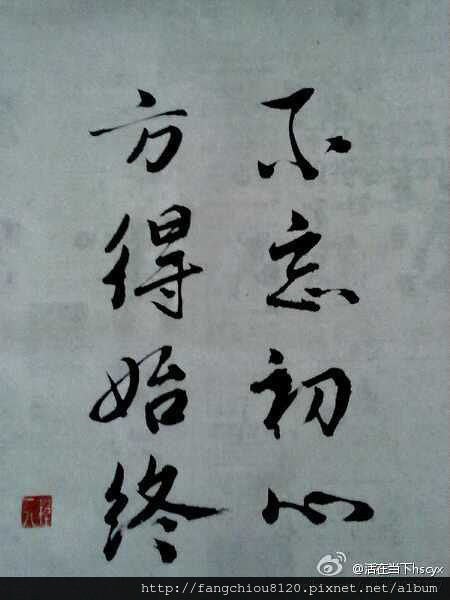 不忘初心
方得始终
@活在当下hscyx
http://fangchiou8120.pixnet.net/album